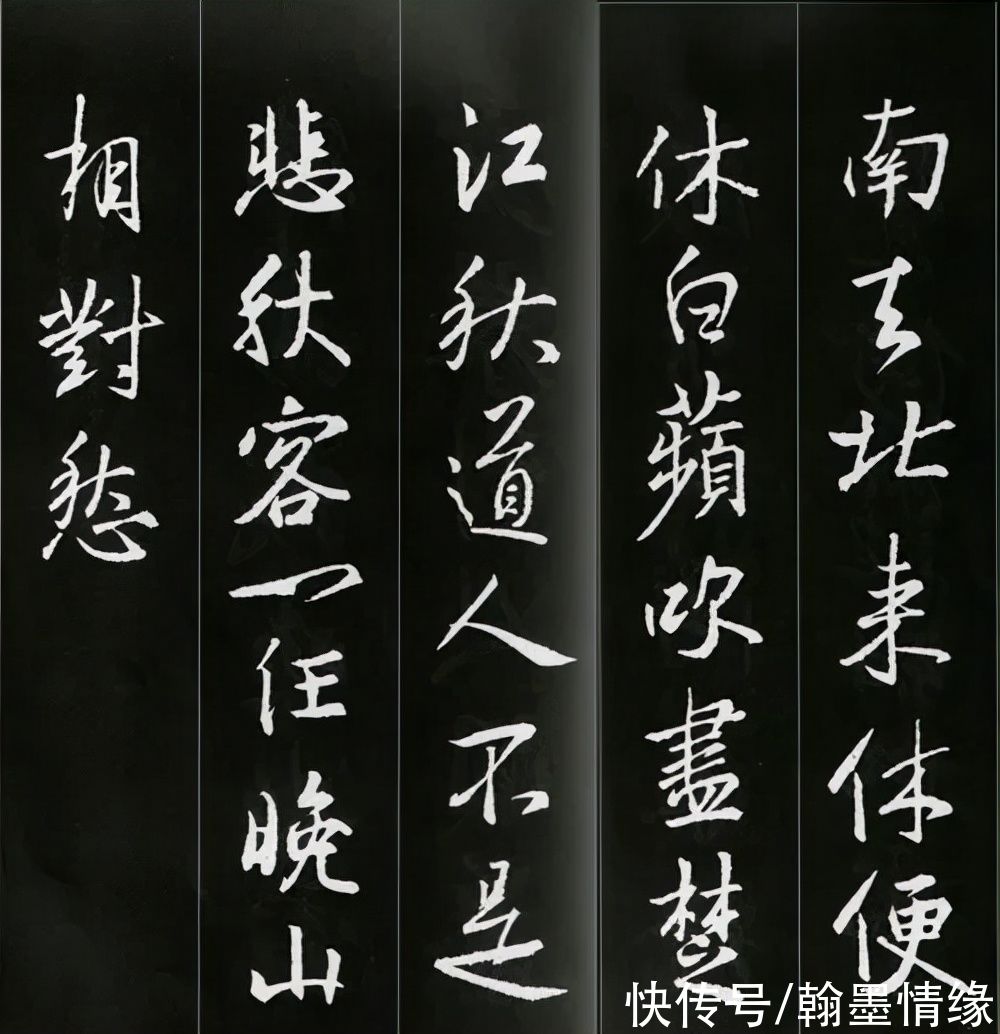 南去北来休便
休白蘋吹盡楚
江秋道人不是
悲秋客一任晚山
相對愁
快传号/翰墨情缘